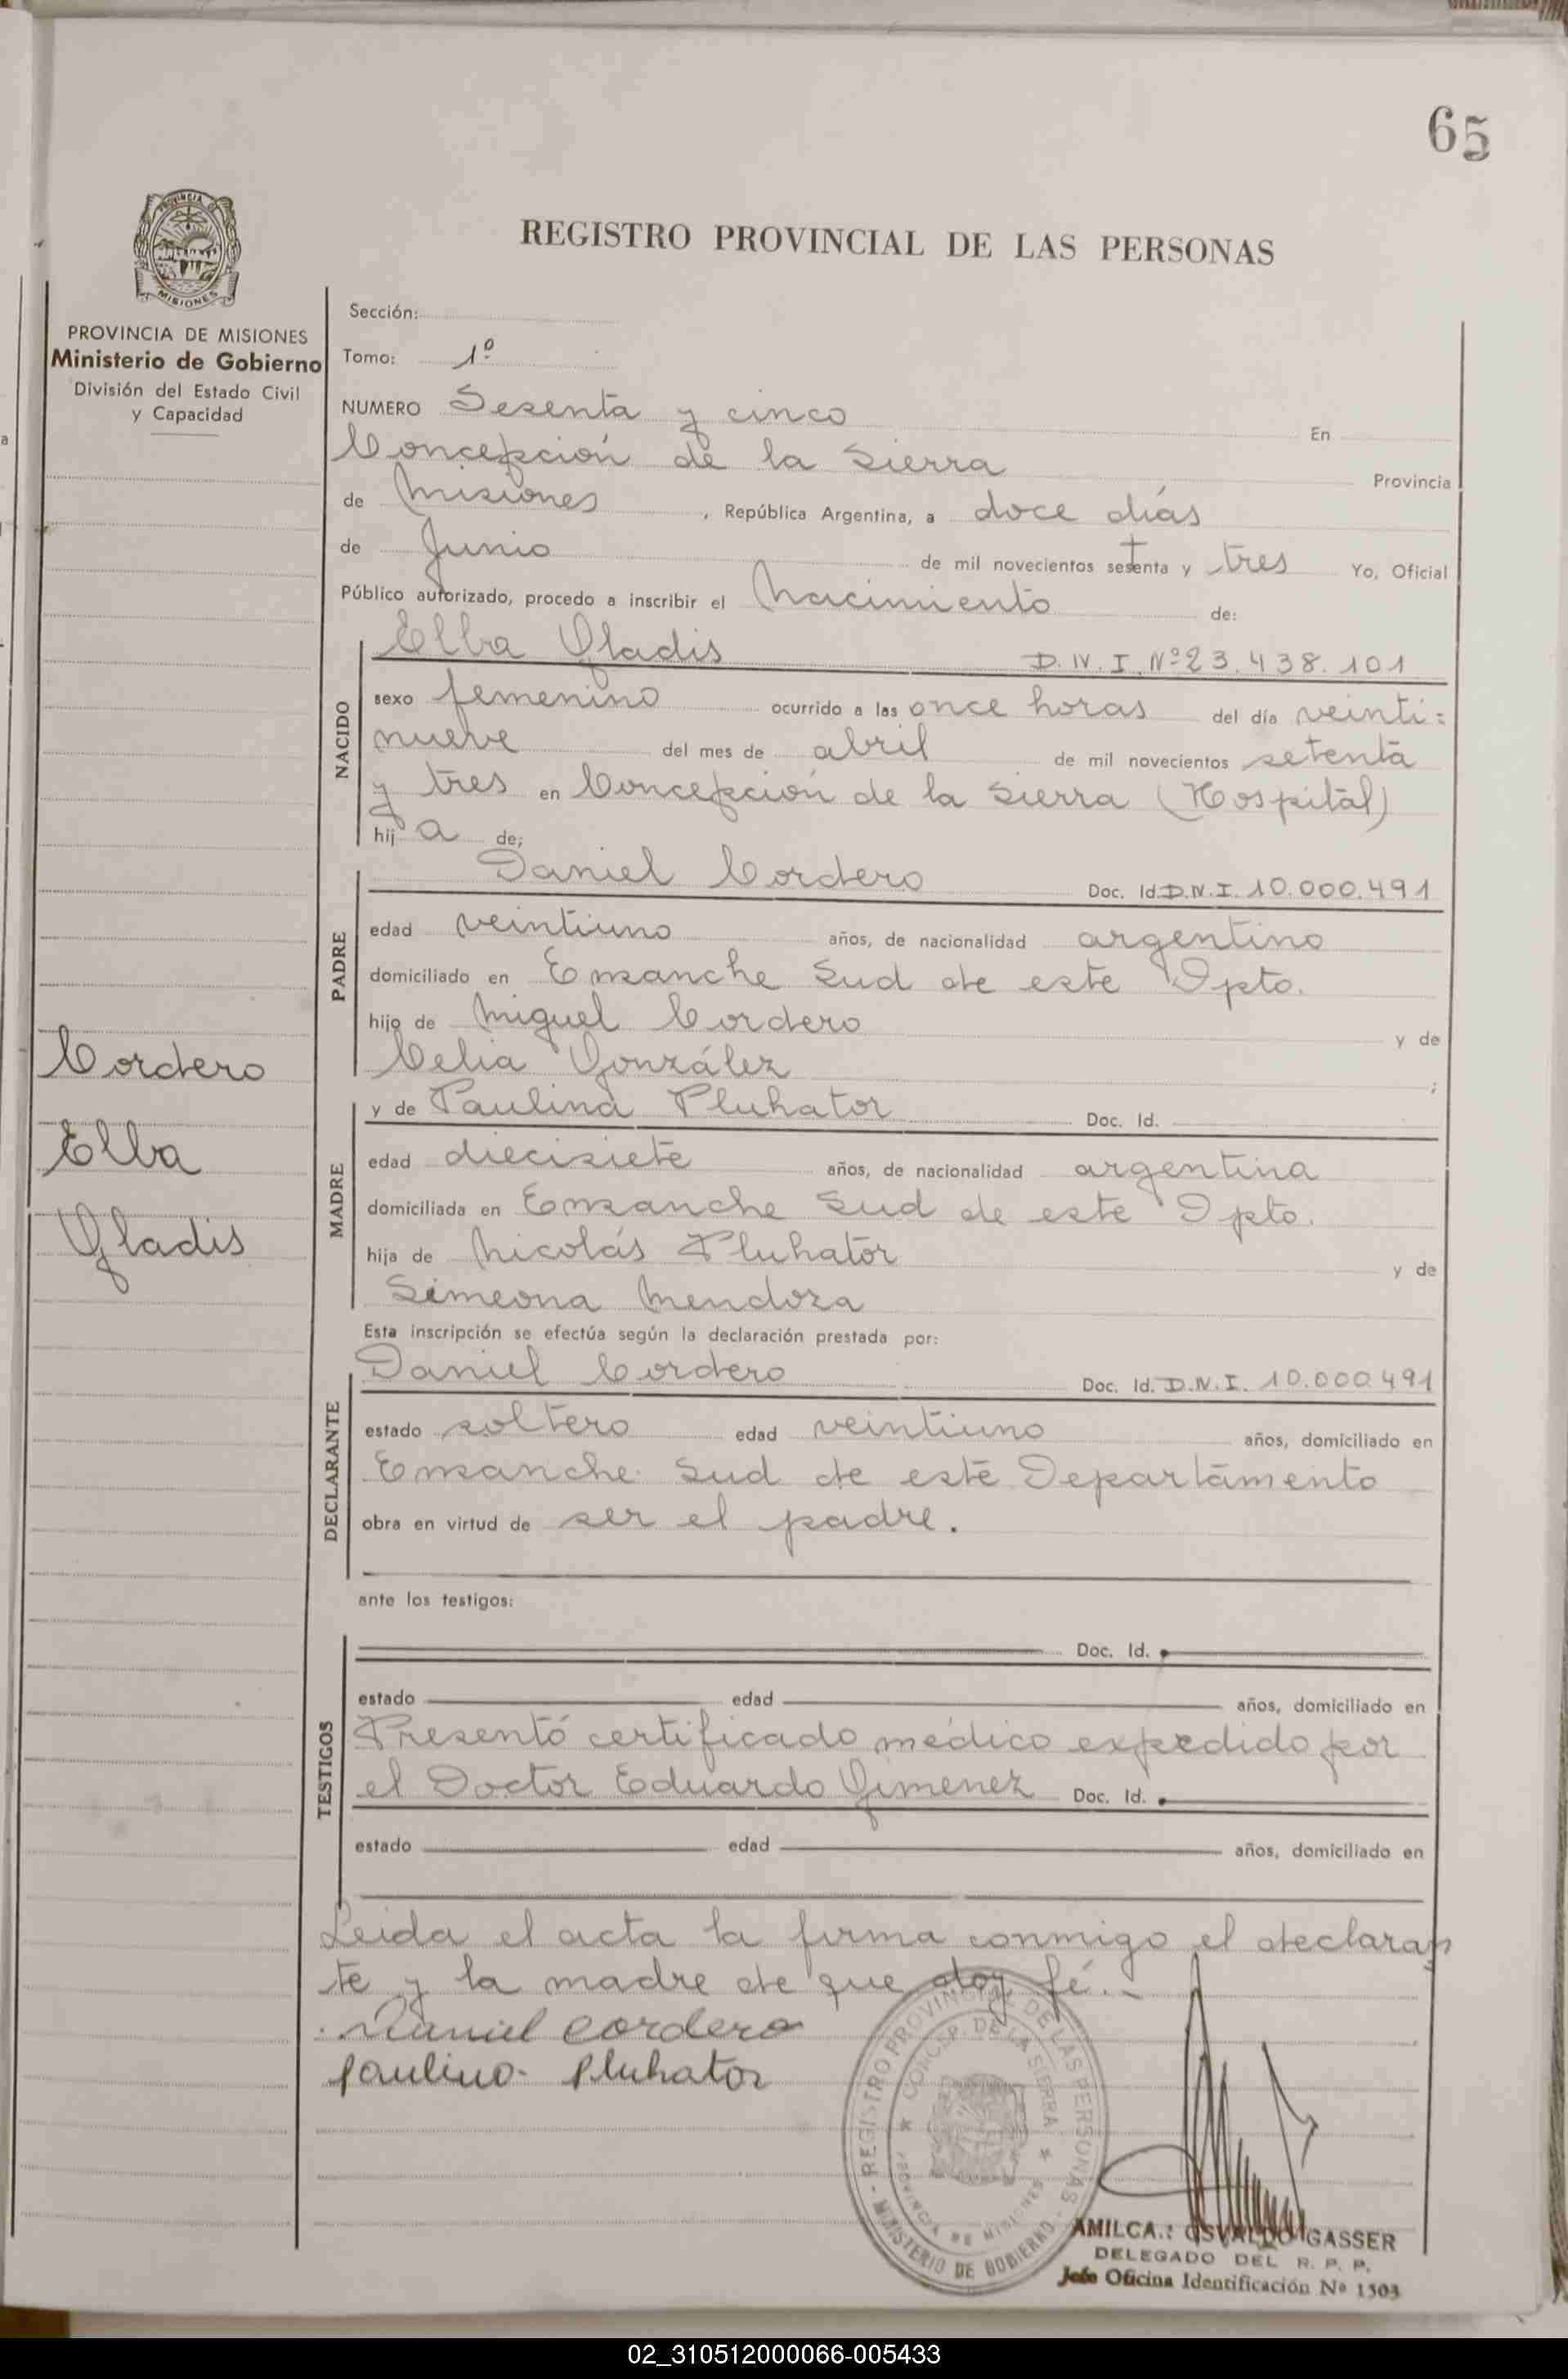 65
REGISTRO PROVINCIAL DE LAS PERSONAS
PROVINCIA DE MISIONES
Ministerio de Gobierno
División del Estado Civil
y Capacidad
Sección:
Tomo: 1º
NUMERO Sesenta y cinco En
Concepción de la Sierra Provincia
de Misiones, República Argentina, a doce días
de Junio de mil novecientos setenta y tres Yo, Oficial
Público autorizado, procedo a inscribir el Nacimiento de:
NACIDO
Elba Gladis D.N.I. Nº 23.438.101
sexo femenino ocurrido a las once horas del día veinti=
nueve del mes de abril de mil novecientos setenta
y tres en Concepción de la Sierra (Hospital)
hija de;
PADRE
Daniel Cordero Doc. Id. D.N.I. 10.000.491
edad veintiuno años, de nacionalidad argentino
domiciliado en Ensanche Sud de este Dpto.
hijo de Miguel Cordero y de
Celia González ;
MADRE
y de Paulina Pluhator Doc. Id.
edad diecisiete años, de nacionalidad argentina
domiciliada en Ensanche Sud de este Dpto.
hija de Nicolás Pluhator y de
Simeona Mendoza
Esta inscripción se efectúa según la declaración prestada por:
DECLARANTE
Daniel Cordero Doc. Id. D.N.I. 10.000.491
estado soltero edad veintiuno años, domiciliado en
Ensanche Sud de este Departamento
obra en virtud de ser el padre.
ante los testigos:
TESTIGOS
Doc. Id.
estado edad años, domiciliado en
Presentó certificado médico expedido por
el Doctor Eduardo Gimenez Doc. Id.
estado edad años, domiciliado en
Leida el acta la firma conmigo el declaran
te y la madre de que doy fé.-
Daniel Cordero
Paulina Pluhator
Cordero
Elba
Gladis
REGISTRO PROVINCIAL DE LAS PERSONAS - MINISTERIO DE GOBIERNO -
CONCEP. DE LA SIERRA
PROVINCIA DE MISIONES
AMILCA.: OSVALDO GASSER
DELEGADO DEL R. P. P.
Jefe Oficina Identificación Nº 1503
02_310512000066-005433